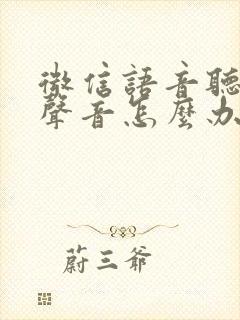 微信語音聽
聲音怎麼办
蔚三爷